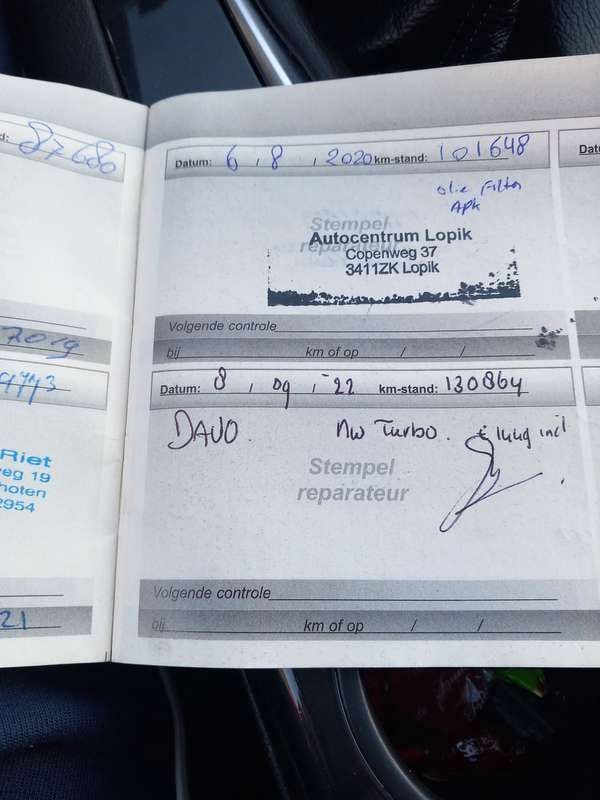 d: 87680
2019
9773
Riet
eg 19
hoten
2954
21
Datum: 6 / 8 / 2020 km-stand: 101648
olie Filter
APK
Stempel
reparateur
Autocentrum Lopik
Copenweg 37
3411ZK Lopik
Volgende controle
bij km of op / /
Datum: 8 / 09 / -22 km-stand: 130864
DAVO. NW Turbo. incl
Stempel
reparateur
Volgende controle
bij km of op / /
Datu